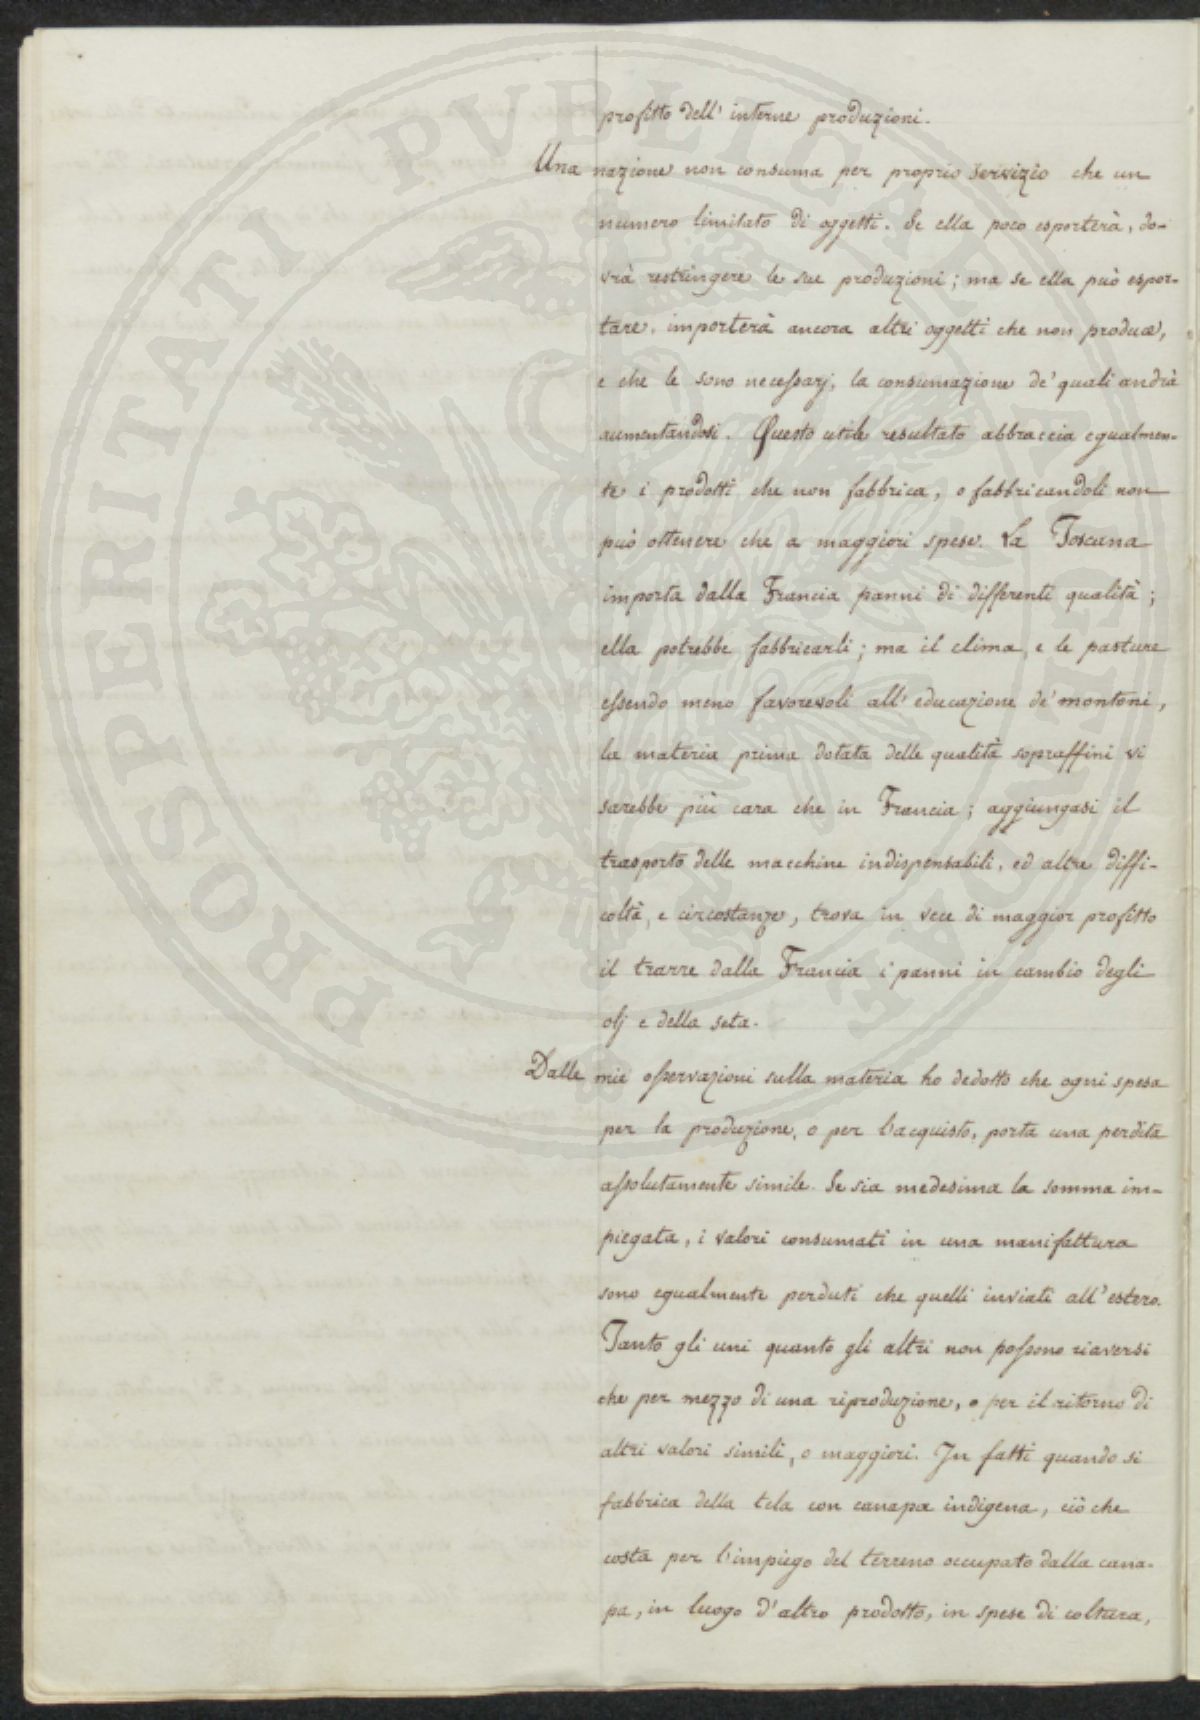 profitto dell' interne produzioni.
Una nazione non consuma per proprio servizio che un
numero limitato di oggetti. Se ella poco esporterà, do-
vrà restringere le sue produzioni; ma se ella può espor-
tare, importerà ancora altri oggetti che non produce,
e che le sono necessarj, la consumazione de' quali andrà
aumentandosi. Questo utile resultato abbraccia egualmen-
te i prodotti che non fabbrica, o fabbricandoli non
può ottenere che a maggiori spese. La Toscana
importa dalla Francia panni di differenti qualità;
ella potrebbe fabbricarli; ma il clima, e le pasture
essendo meno favorevoli all' educazione de' montoni,
la materia prima dotata delle qualità sopraffini vi
sarebbe più cara che in Francia; aggiungasi il
trasporto delle macchine indispensabili, ed altre diffi-
coltà, e circostanze, trova in vece di maggior profitto
il trarre dalla Francia i panni in cambio degli
olj e della seta.
Dalle mie osservazioni sulla materia ho dedotto che ogni spesa
per la produzione, o per l'acquisto, porta una perdita
assolutamente simile. Se sia medesima la somma im-
piegata, i valori consumati in una manifattura
sono egualmente perduti che quelli inviati all' estero.
Tanto gli uni quanto gli altri non possono riaversi
che per mezzo di una riproduzione, o per il ritorno di
altri valori simili, o maggiori. In fatti quando si
fabbrica della tela con canapa indigena, ciò che
costa per l'impiego del terreno occupato dalla cana-
pa, in luogo d'altro prodotto, in spese di coltura,
PROSPERITATI PVBLICAE AVGENDAE